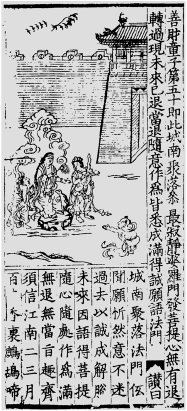 善財童子第五十即此城南聚落參 最寂靜婆羅門發菩提心無有退
轉過現未來已退當退隨意作為皆悉成滿得誠願語法門 讚曰
城南聚落法門低
聞願忻然意不迷
過去以誠成解脫
未來因語得菩提
隨心隨處作為滿
無退無當百趣齊
須信江南二三月
百裏鷓鴣啼